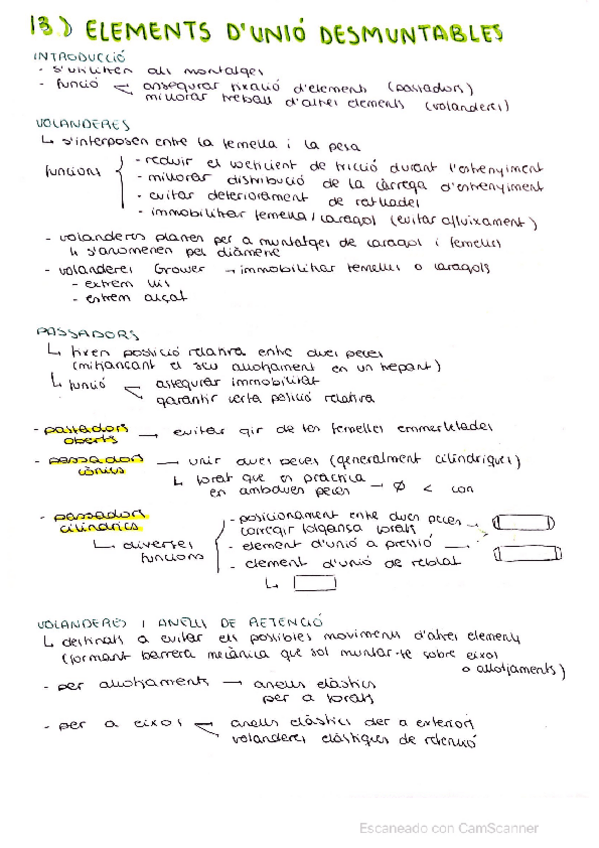 13.) ELEMENTS D'UNIÓ DESMUNTABLES
INTRODUCCIÓ
- s'utilitzen als muntatges
- funció assegurar fixació d'elements (passadors)
millorar treball d'altres elements (volanderes)
VOLANDERES
↳ s'interposen entre la femella i la peça
funcions
- reduir el coeficient de fricció durant l'estrenyiment
- millorar distribució de la càrrega d'estrenyiment
- evitar deteriorament de
- immobilitzar femella/caragol (evitar afluixament)
- volanderes planes per a muntatges de caragol i femelles
↳ s'anomenen pel diàmetre
- volanderes Grower → immobilitzar femelles o caragols
- extrem llis
- extrem alçat
PASSADORS
↳ fixen posició relativa entre dues peces
(mitjançant el seu allotjament en un trepant)
↳ funció assegurar immobilitat
garantir certa posició relativa
- passadors oberts → evitar gir de les femelles emmerletades
- passadors cònics → unir dues peces (generalment cilíndriques)
↳ forat que es practica
en ambdues peces → Ø < con
- passadors cilíndrics
↳ diverses funcions
- posicionament entre dues peces →
corregir folgança forats
- element d'unió a pressió →
- element d'unió de reblat
↳
VOLANDERES I ANELLS DE RETENCIÓ
↳ destinats a evitar els possibles moviments d'altres elements
(formant barrera mecànica que sol muntar-se sobre eixos
o allotjaments)
- per allotjaments → anells elàstics
per a forats
- per a eixos anells elàstics per a exteriors
volanderes elàstiques de retenció
Escaneado con CamScanner